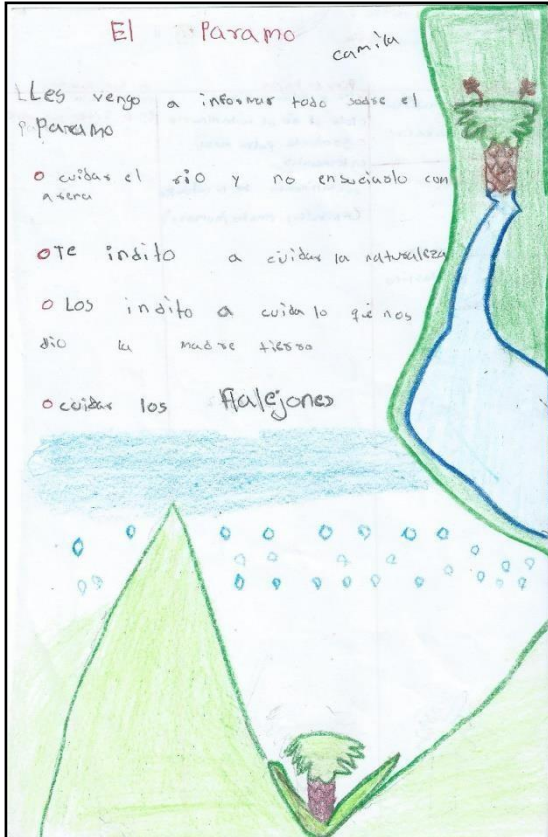 El Paramo
camila
Les vengo a informar todo sobre el
Paramo
o cuidar el rio y no ensuciarlo con
arena
o Te indito a cuidar la naturaleza
o Los indito a cuida lo que nos
dio la madre tierra
o cuidar los Flalejones